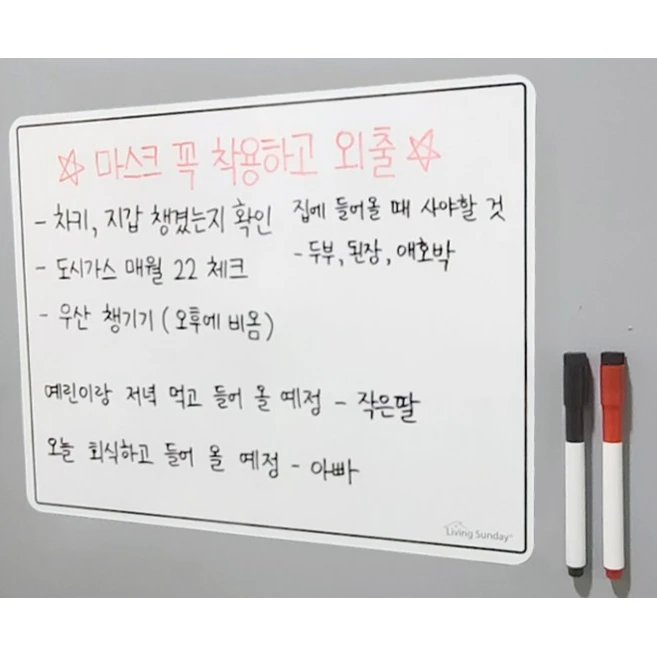 ☆ 마스크 꼭 착용하고 외출 ☆
- 차키, 지갑 챙겼는지 확인
- 도시가스 매월 22 체크
- 우산 챙기기 (오후에 비옴)
집에 들어올 때 사야할 것
- 두부, 된장, 애호박
예린이랑 저녁 먹고 들어 올 예정 - 작은딸
오늘 회식하고 들어 올 예정 - 아빠
Living Sunday